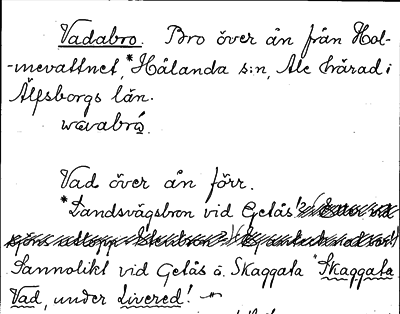 Vadabro. Bro över ån från Hol-
-mevattnet,* Hålanda s:n, Ale härad i
Älfsborgs län.
wavabró.
Vad över ån förr.
*"Landsvägsbron vid Getås!
Sannolikt vid Getås å. Skaggata "Skaggata
Vad, under Livered!